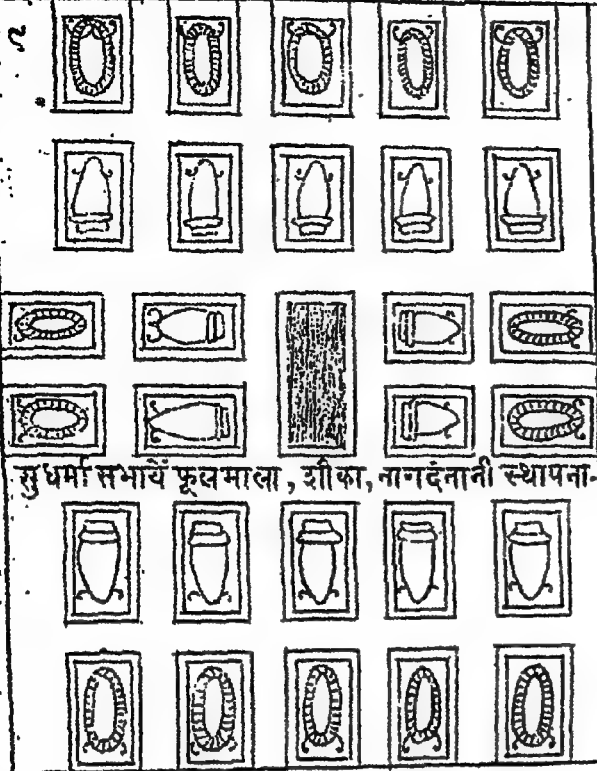 सुधर्मा सभायें फूलमाला, शीका, नागदंतानी स्थापना-